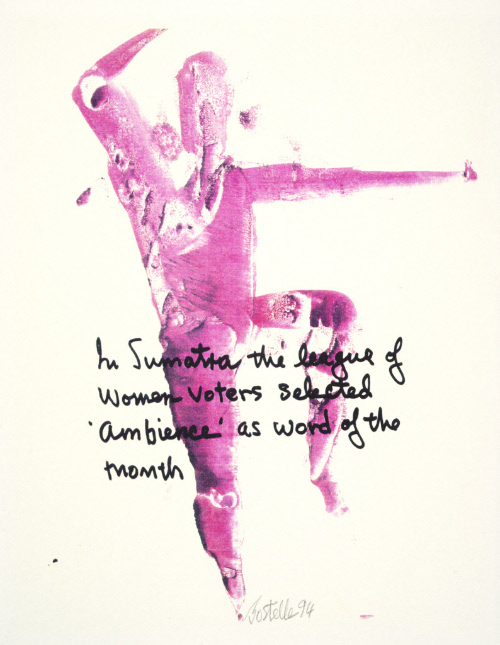 In Sumatra the league of
Women Voters selected
'ambience' as word of the
month
Vostelle 94